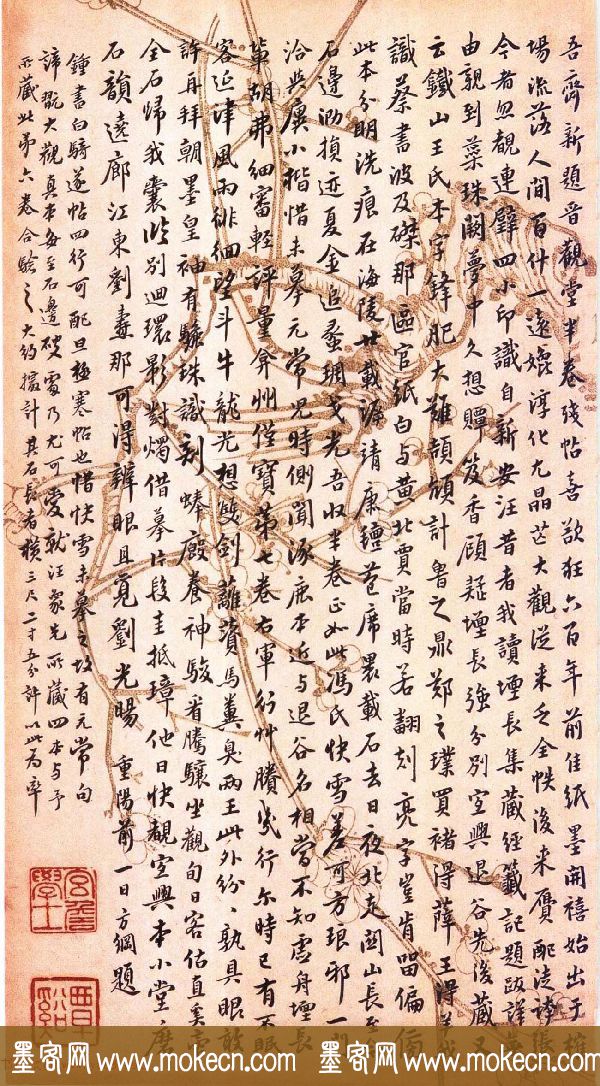 吾齋新題晉觀堂半卷殘帖喜欲狂六百年前佳紙墨開禧始出于榷
場流落人間百什一遠媲淳化尤晶芒大觀從來乏全帙後來贋配法諱張
今者忽覩連璧四小印識自新安汪昔者我讀堙長集藏經籤記題跋詳
由親到蕊珠闕夢中久想賸笈香頋疑堙長強分別宜興退谷先後藏又
云鐵山王氏本字鋒肥大難頡頏計魯之鼎鄭之璞買褚得薛王得羊我
識蔡書波及磔那區官紙白与黃北賈當時若翻刻亮字豈肯留偏傍
此本分明洗痕在海陵廿載源靖康氊苞席裹載石去日夜北走関山長至今
石邊泐損迹夏金追蠡琱戈光吾収半卷正如此馮氏快雪差可方琅邪一門
洽与廙小楷惜未摹元常児時側聞涿鹿本近与退谷名相當不知虛舟堙長
輩胡弗細審輕評量弇州僅寶第七卷右軍行艸賸幾行尓時已有不眠
客延津風雨徘徊望斗牛龍光想雙劍蘺蕡馬糞臭兩王此外紛〻孰具眼敢
許再拜朝墨皇袖有驪珠識剎蜯廄養神駿省騰驤坐觀旬日客估直奚啻
全石歸我囊臨別迴環影對燭借摹片段圭抵璋他日快觀宜興本小堂磨
石韻遠廊江東劉燾那可得辨眼且覓劉光暘 重陽前一日方綱題
鍾書白騎遂帖四行可配旦極寒帖也惜快雪未摹之故有元常句
諦翫大觀真本每至石邊破處乃尤可愛就汪蒙先所藏四本与予
所藏此第六卷合驗之大約據計其石長者橫三尺二寸五分許以此為率
墨客网 www.mokecn.com 墨客网 www.mokecn.com